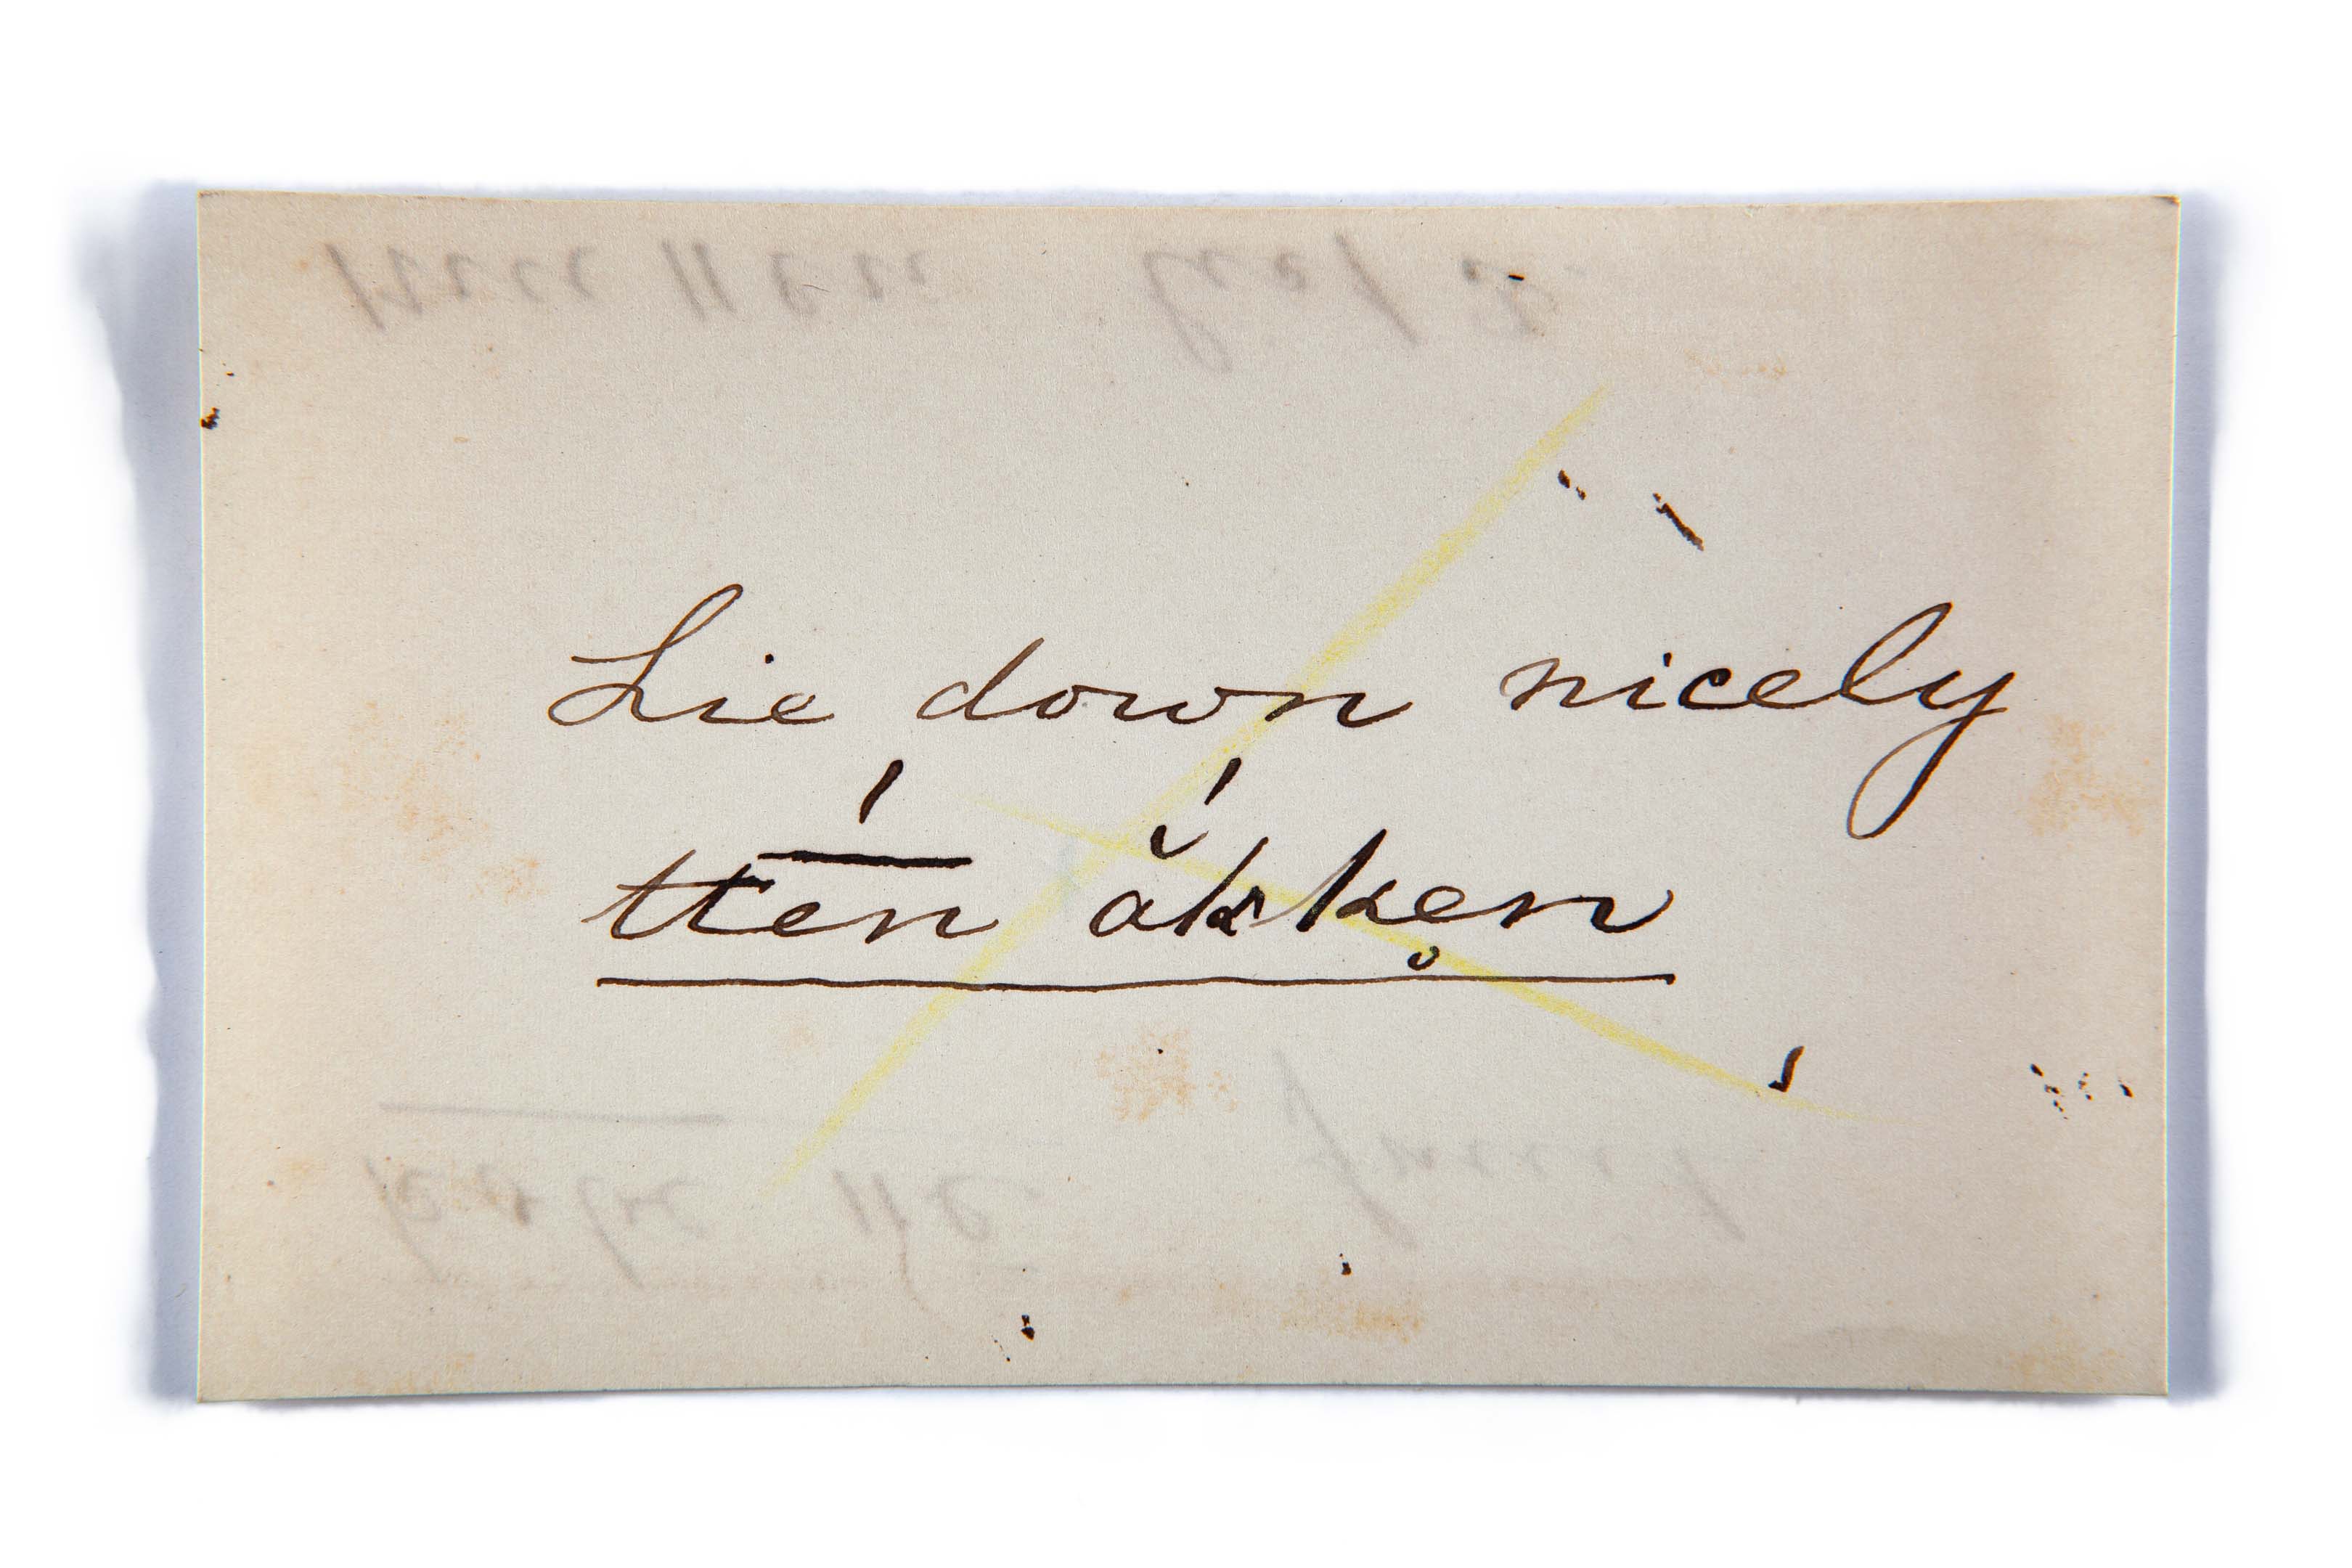 Lie down nicely
ttḗn ắkke̥n